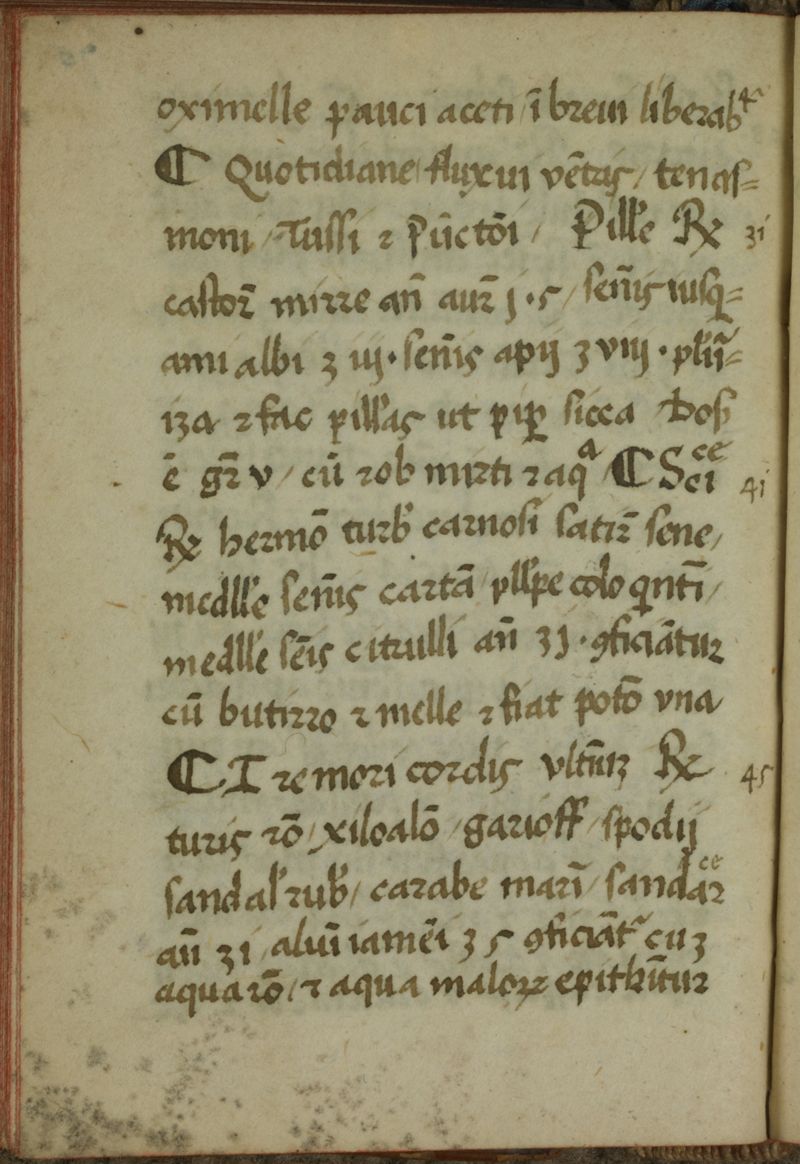 oximelle pauci aceti / ī breui liberabᵗʳ
¶ Quotidiane fluxui vētris / tenas=
moni / Tussi ⁊ pūctōi / Pille ℞ 31
castor̄ mirre añ aur̄ j · s / señis iusq=
ami albi ʒ iij · señis apij ʒ viij ·
iza ⁊ fac pillas ut pip sicca dos
ē gr̄ v / cū rob mirti ⁊ aqᵃ ¶ Sciᶜᵉ 41
℞ hermō turb carnosi satir̄ sene /
medlle señis cartā / pllpe coloqnti /
medlle sēis citrulli añ ʒ j · ꝯficiātur
cū butirro ⁊ melle ⁊ fiat potō vna
¶ Tremori cordis vltīz ℞ 45
turis rō / xiloalō / garioff / spodij
sandal rub / carabe marī / sandarᶜᵉ
añ ʒ i / aluī iamēi ʒ s ꝯficiātʳ cuʒ
aqua rō / ⁊ aqua maloꝝ epithītur